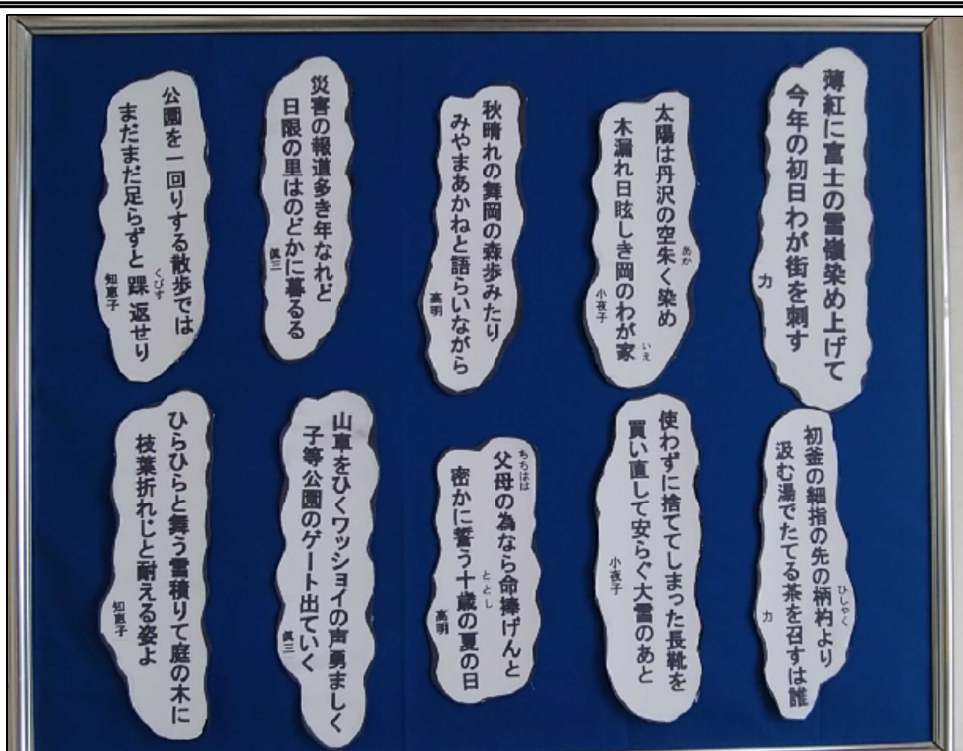 薄紅に富士の雪嶺染め上げて
今年の初日わが街を刺す
力
太陽は丹沢の空朱く染め
あか
木漏れ日眩しき岡のわが家
いえ
小夜子
秋晴れの舞岡の森歩みたり
みやまあかねと語らいながら
高明
災害の報道多き年なれど
日限の里はのどかに暮るる
眞三
公園を一回りする散歩では
まだまだ足らずと踝返せり
くびす
知恵子
初釜の細指の先の柄杓より
ひしゃく
汲む湯でたてる茶を召すは誰
力
使わずに捨ててしまった長靴を
買い直して安らぐ大雪のあと
小夜子
父母の為なら命捧げんと
ちちはは
密かに誓う十歳の夏の日
ととし
高明
山車をひくワッショイの声勇ましく
子等公園のゲート出ていく
眞三
ひらひらと舞う雪積りて庭の木に
枝葉折れじと耐える姿よ
知恵子